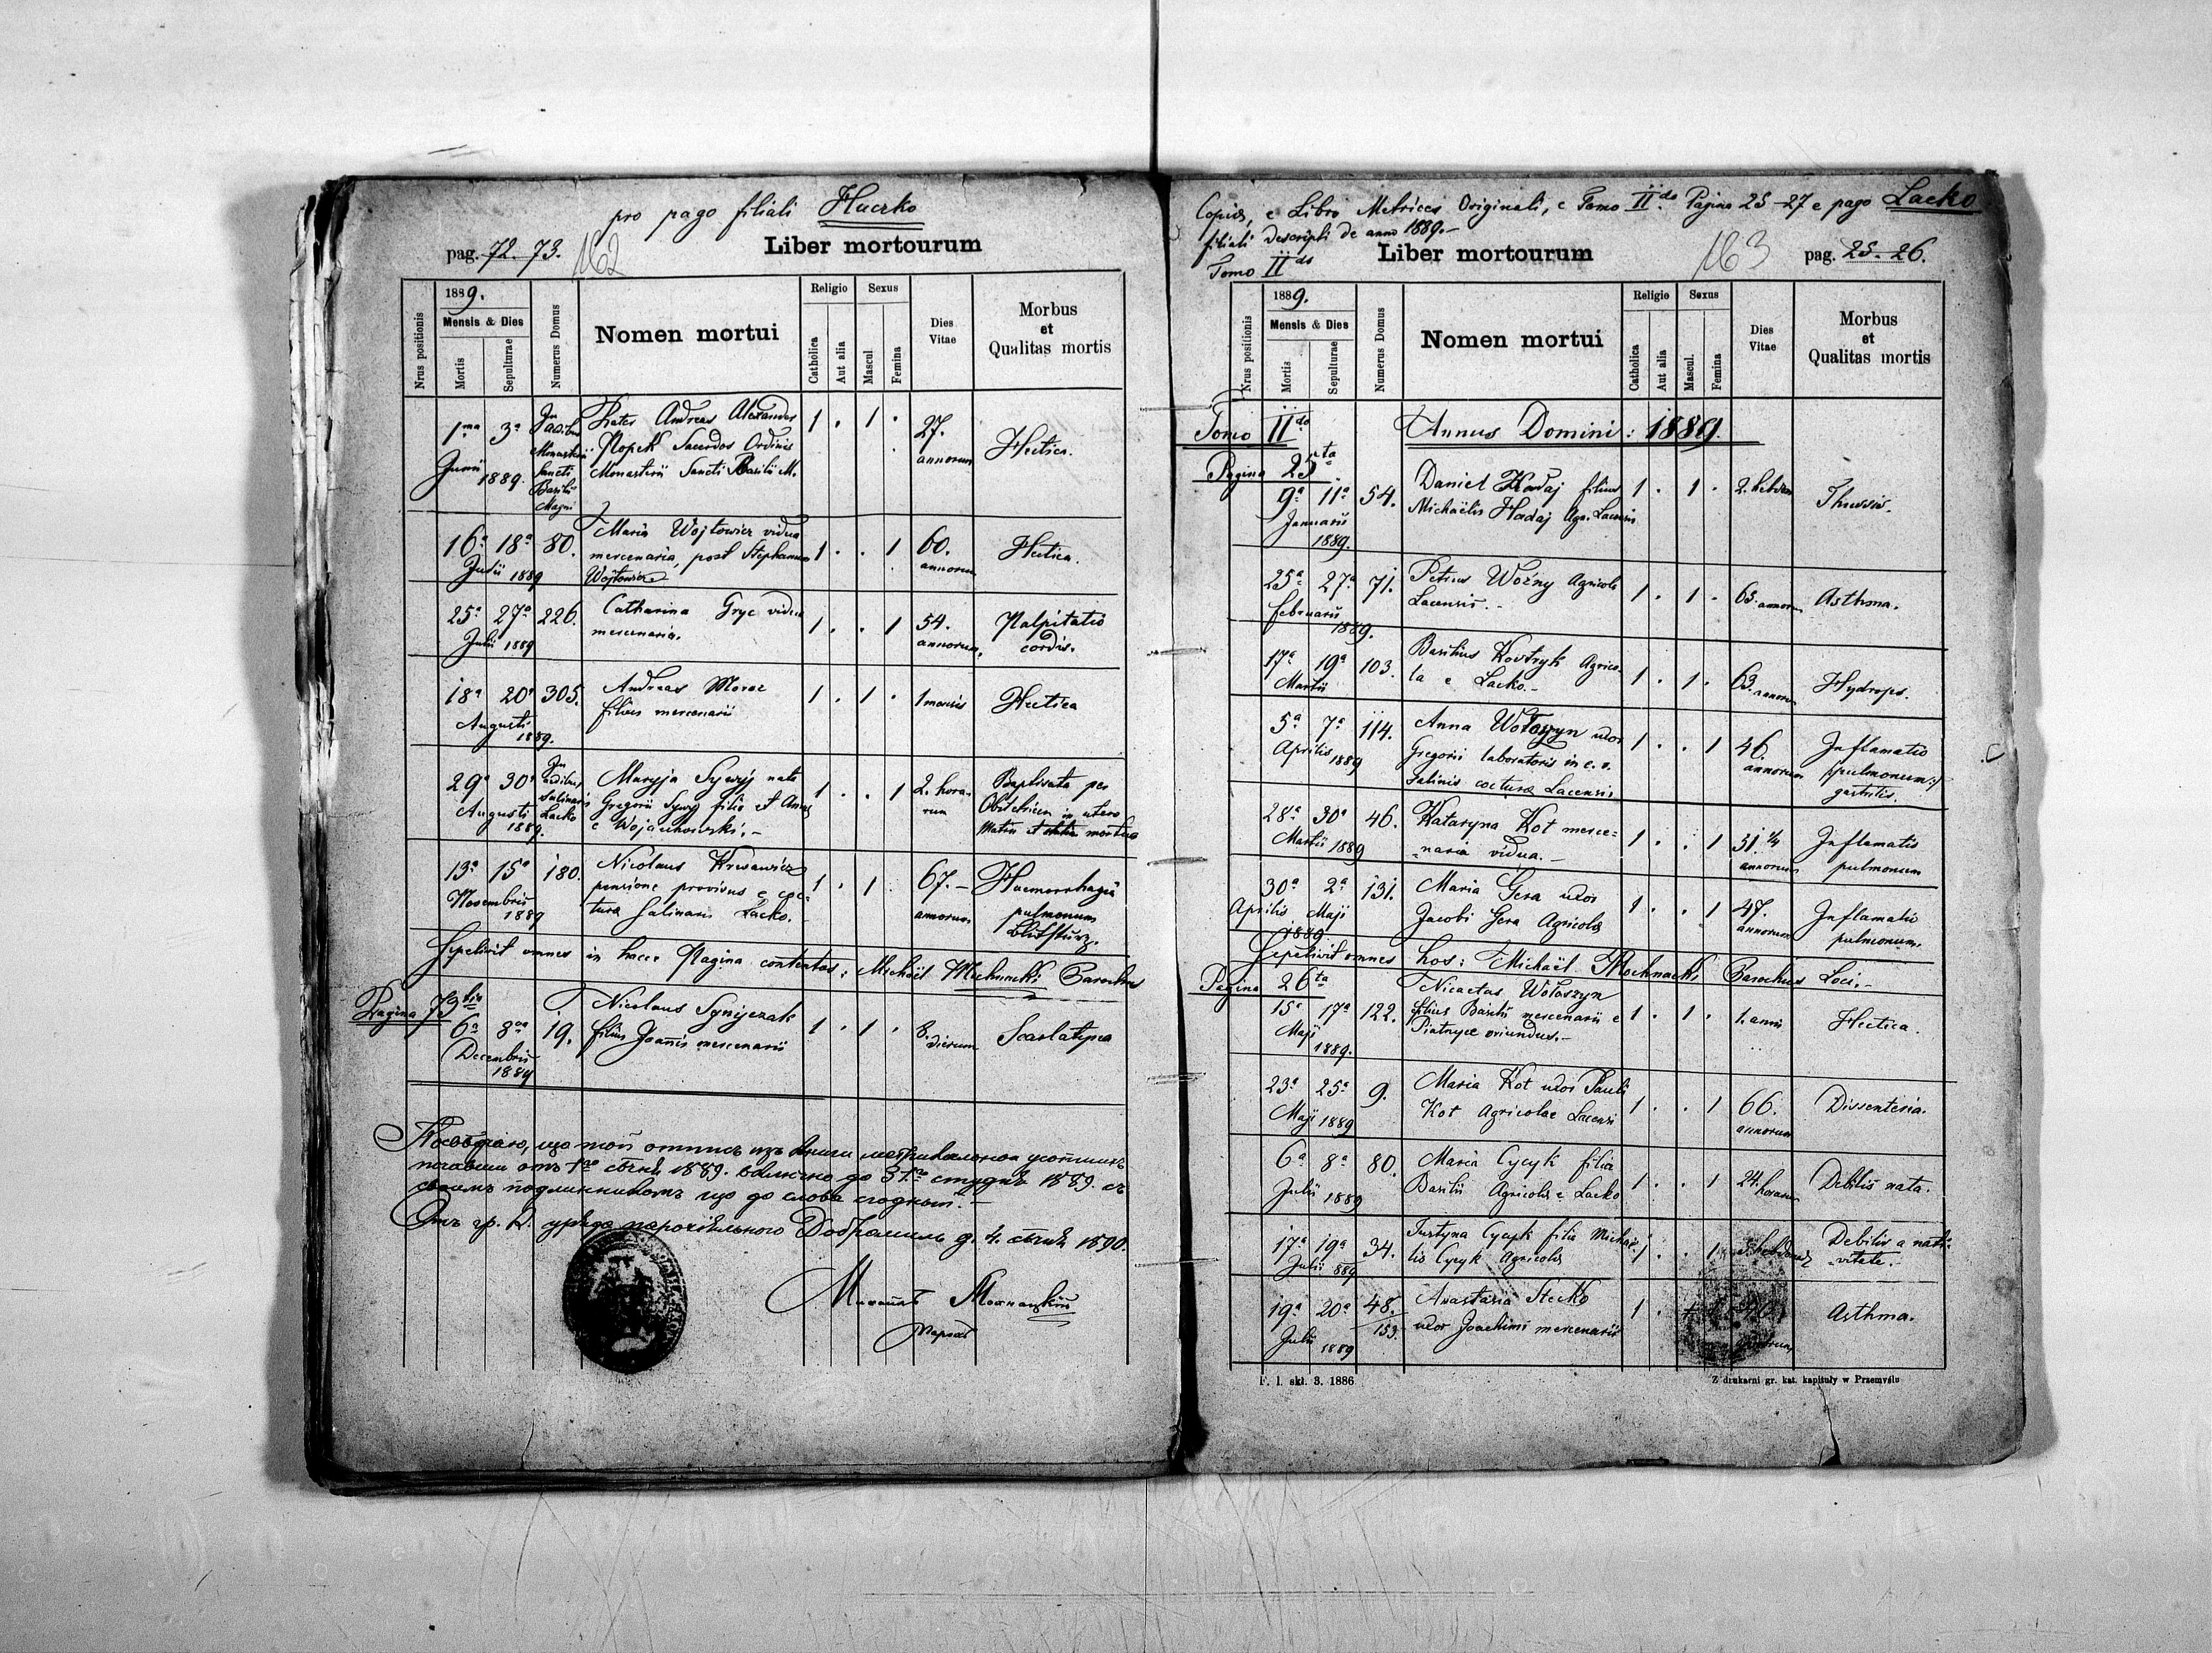 pro pago filiali Huczko
pag. 72. 73.
162
Liber mortourum
Nrus positionis
1889.
Mensis & Dies
Mortis
Sepulturae
Numerus Domus
Nomen mortui
Religio
Catholica
Aut alia
Sexus
Mascul
Femina
Dies
Vitae
Morbus
et
Qualitas mortis
1ma 3a
Junii
1889.
In
aedibus
Monasterii
Sancti
Basilii
Magni
Frater Andreas Alexander
Sacerdos Ordinis
Monasterii Sancti Basilii M.
1 . 1 .
27.
annorum
Hectica.
16a 18a 80.
Julii 1889
Maria Wojtowicz vidua
mercenaria, post Stephanum
Wojtowicz
1 . . 1
60.
annorum
Hectica.
25a 27a 226.
Julii 1889
Catharina Gryc vidua
mercenaria.
1 . . 1
54.
annorum,
Palpitatio
cordis.
18a 20a 305.
Augusti
1889.
Andreas Moroz
filius mercenarii
1 . 1 .
1 mensis
Hectica
29a 30a
Augusti
1889.
In
aedibus
Salinaris
Lacko
Maryja Sywyj nata
Gregorii Sywyj filia et Annae
e Wojciechowski. –
1 . . 1
2. hora-
rum
Baptisata per
Obstetricem in utero
Matris et mortua
13a 15a 180.
Novembris
1889
Nicolaus
pensione provisus e coc-
tura Salinari Lacko.
1 . 1 .
67. –
annorum
Haemorrhagia
pulmonum
Blutsturz.
Sepelivit omnes in hacce Pagina contentos: Michaël Mochnacki Parochus
Pagina 73
6a 8va 19.
Decembris
1889
Nicolaus Synijczak
filius Joannis mercenarii
1 . 1 .
8.
dierum
Scarlatyna
що той отпись изъ книги метрикальной усопшихъ
отъ 1го сѣчня 1889. включно до 31го студня 1889. съ
своимъ подлинникомъ що до слова сгодный. –
Отъ гр. к. уряда парохіяльного Добромиль д. 4. сѣчня 1890.
Михаилъ Мохнацкій
Парохъ
Copia, e Libro Metrices Originali, e Tomo IIdo Pagina 25–27 e pago Lacko
filiali descripti de anno 1889. –
Tomo IIdo
Liber mortourum
163
pag. 25. 26.
Nrus positionis
1889.
Mensis & Dies
Mortis
Sepulturae
Numerus Domus
Nomen mortui
Religio
Catholica
Aut alia
Sexus
Mascul.
Femina
Dies
Vitae
Morbus
et
Qualitas mortis
Tomo IIdo
Annus Domini: 1889.
Pagina 25ta
9a 11a 54.
Januarii
1889.
Daniel Hadaj filius
Michaëlis Hadaj Agr. Lacensis
1 . 1 .
2. hebdom
Thussis.
25a 27a 71.
Februarii
1889.
Petrus Woźny Agricola
Lacensis. –
1 . 1 .
63. annorum
Asthma.
17a 19a 103.
Martii
Basilius Kovtryk Agrico-
la e Lacko. –
1 . 1 .
63. annorum
Hydrops.
5a 7a 114.
Aprilis 1889
Anna Wołoszyn uxor
Gregorii laboratoris in c. r.
Salinis cocturae Lacensis
1 . . 1
46.
annorum
Inflamatio
pulmonum:/
gastritis.
28a 30a 46.
Martii 1889
Kataryna Kot merce=
naria vidua. –
1 . . 1
51. 1/4
annorum
Inflamatio
pulmonum
30a 2a 131.
Aprilis Maji
1889
Maria Gera uxor
Jacobi Gera Agricolae
1 . . 1
47.
annorum
Inflamatio
pulmonum.
Sepelivit omnes hos: Michaël Mochnacki Parochus Loci. –
Pagina 26ta
15a 17a 122.
Maji
1889.
Nicaetas Wołoszyn
filius Basilii mercenarii e
Piatnyce oriundus. –
1 . 1 .
1. anni
Hectica.
23a 25a 9.
Maji 1889
Maria Kot uxor Pauli
Kot Agricolae Lacensi
1 . . 1
66.
annorum
Dissenteria.
6a 8a 80.
Julii 1889
Maria Cycyk filia
Basilii Agricolae e Lacko
1 . . 1
24. horarum
Debilis nata.
17a 19a 34.
Julii 889
Justyna Cycyk filia Michaë-
lis Cycyk Agricolae
1 . . 1
Debilis a nati-
vitate. –
19a 20a 48.
153.
Julii 1889
Anastasia Stecko
uxor Joachimi mercenarii
1 .
annorum
Asthma.
F. l. skł. 3. 1886
Z drukarni gr. kat. kapituły w Przemyślu